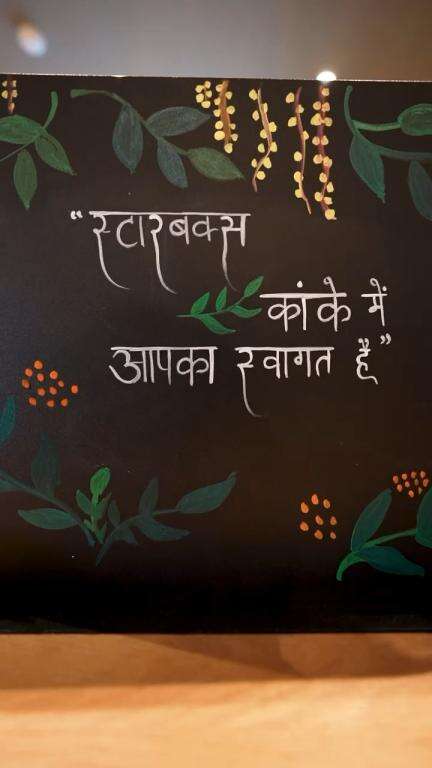 “स्टारबक्स
कांके में
आपका स्वागत है”